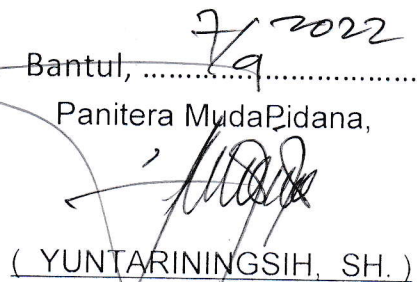 Bantul, ......7/9 2022......
Panitera MudaPidana,
( YUNTARININGSIH, SH. )